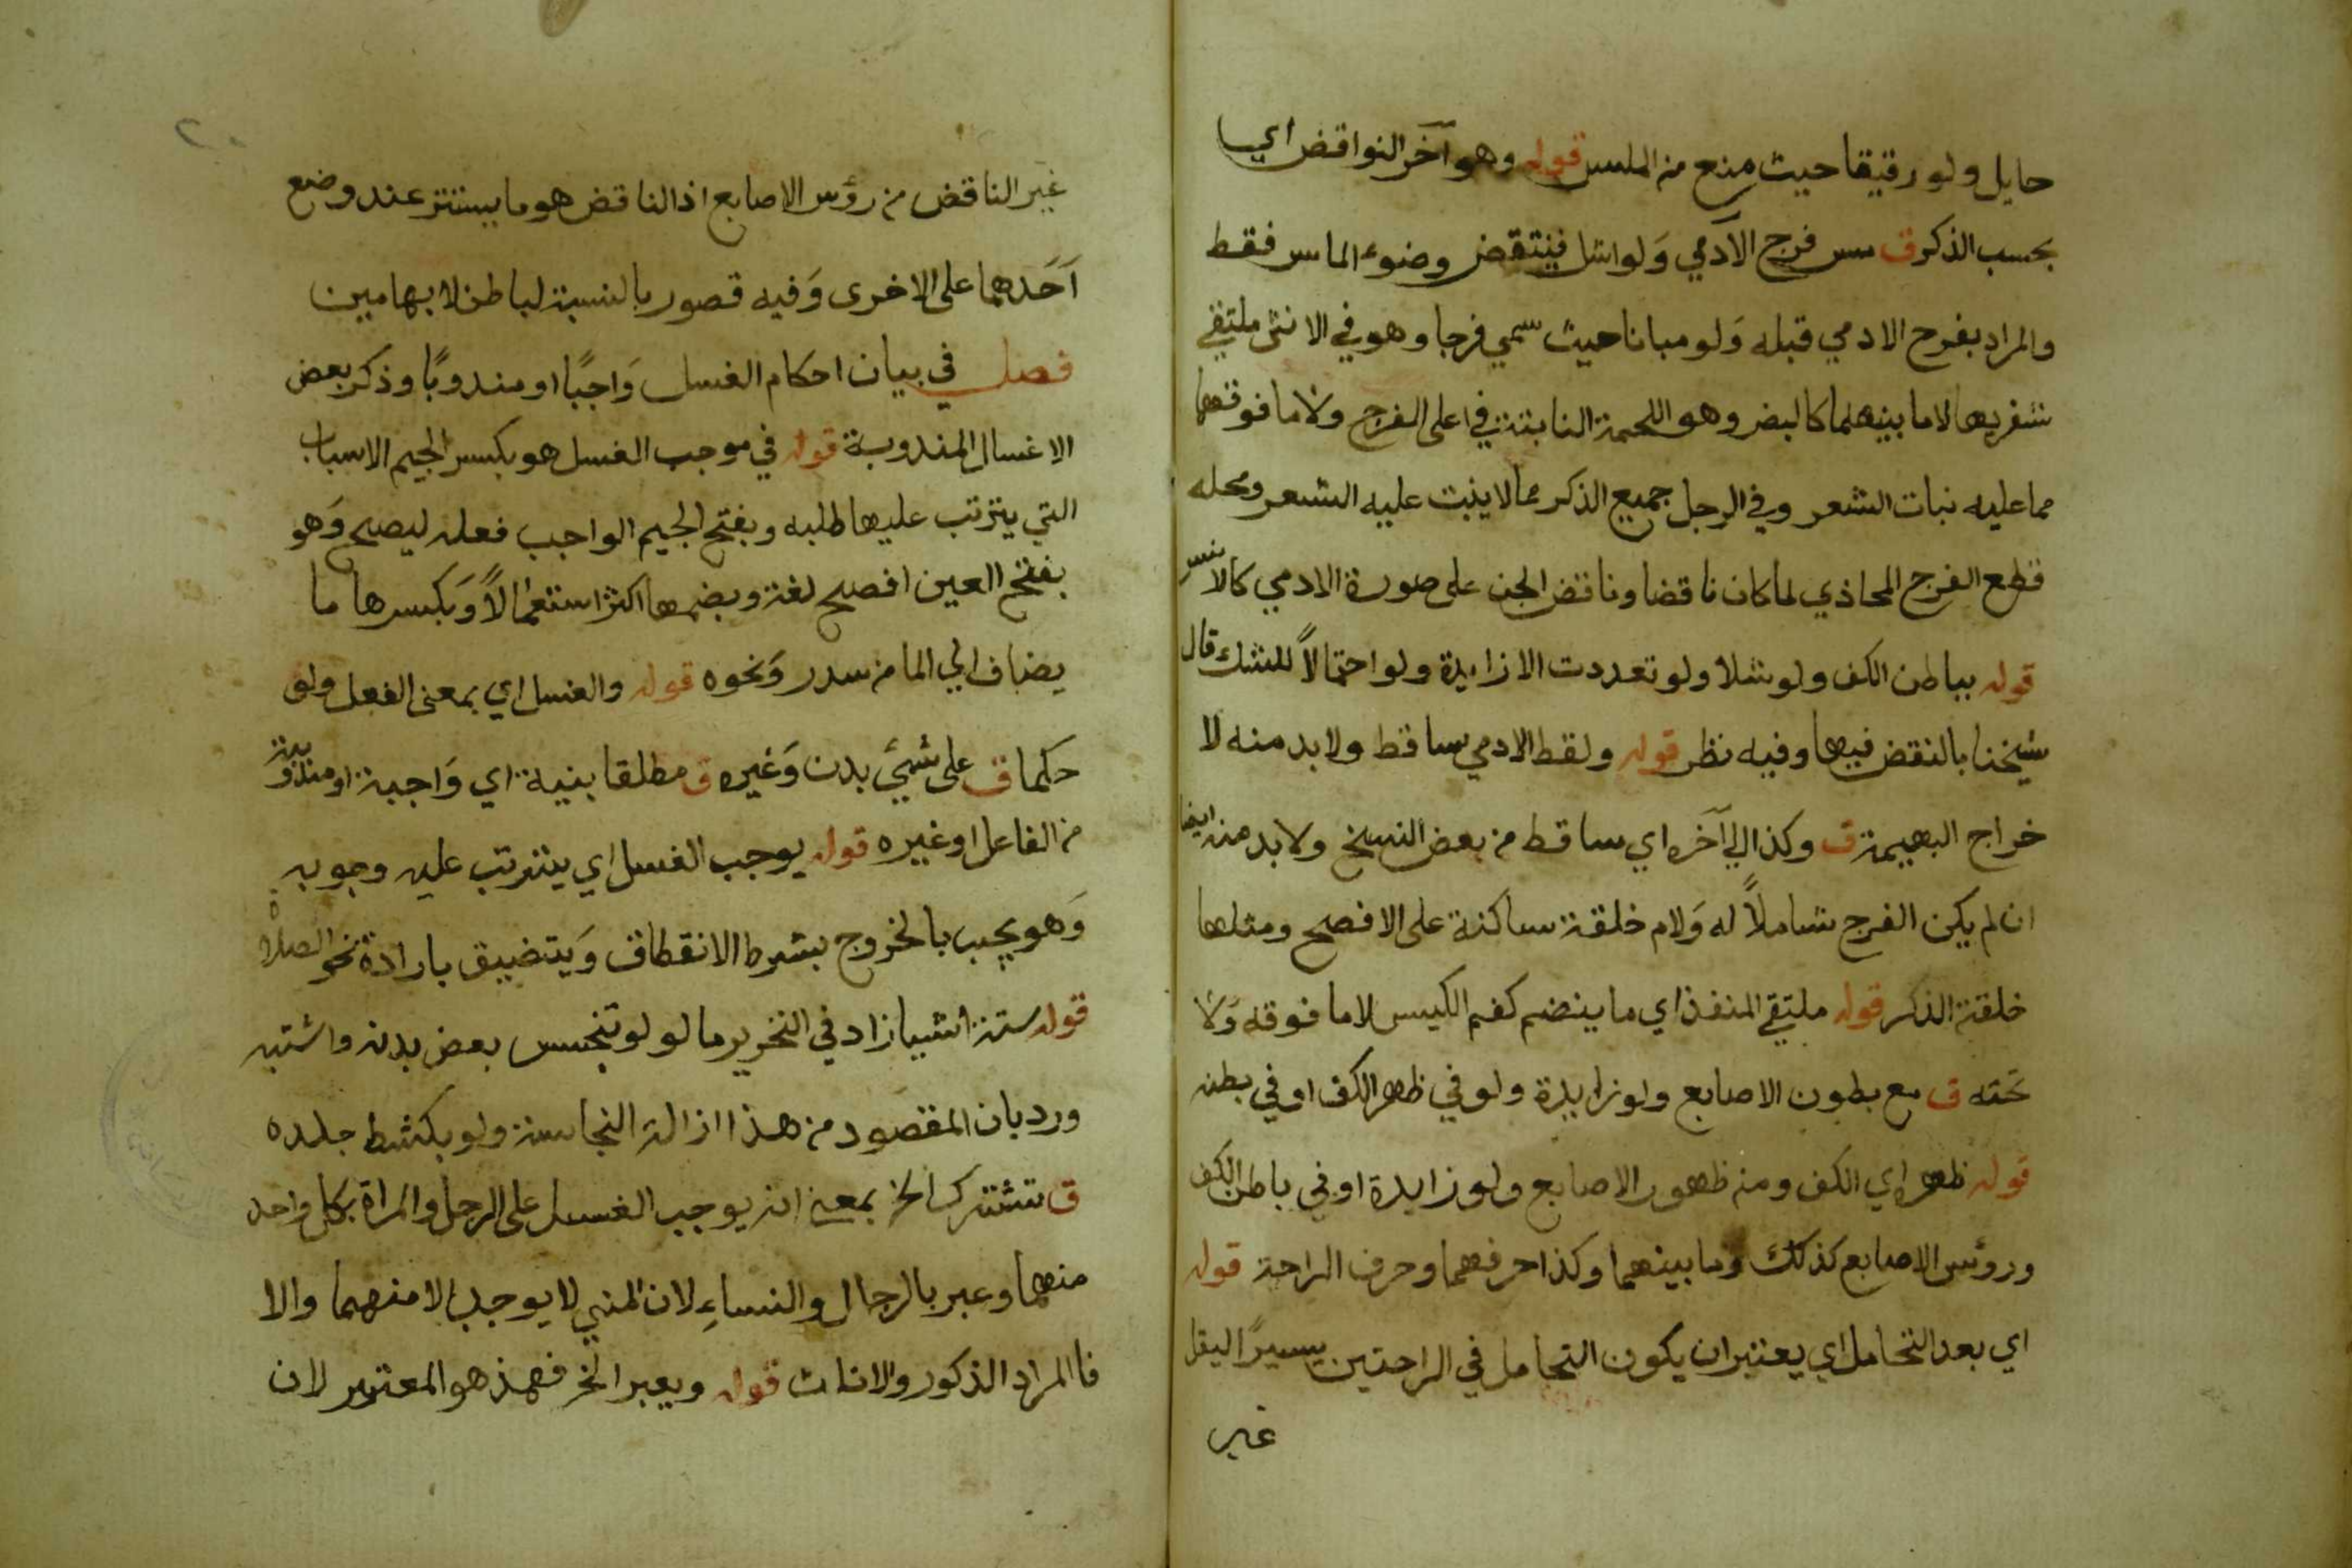 حايل ولو رقيقا حيث منع من الملس قوله وهو آخر النواقض اي
بحسب الذكر ق مس فرج الآدمي وَلو اشل فينتقض وضوء الماس فقط
والمراد بفرج الادمي قبله وَلو مبانا حيث سمي فرجا وهو في الانثى ملتقي
شفريها لا ما بينهما كالبضر وهو اللحمة النابتة في اعلى الفرج ولا ما فوقهما
مما عليه نبات الشعر وفي الرجل جميع الذكر مما لا ينبت عليه الشعر ومحله
قطع الفرج المحاذي لما كان ناقضا وناقض الجن على صورة الادمي كالانس
قوله بباطن الكف ولو شلا ولو تعددت الا زايدة ولو احتمالاً للشك قال
شيخنا بالنقض فيها وفيه نظر قوله ولفظ الادمي ساقط ولا بد منه لا
خراج البهيمة ق وكذا الي آخره اي ساقط من بعض النسخ ولا بد منه ايضا
ان لم يكن الفرج شاملاً له وَلام خلقة ساكنة على الافصح ومثلها
خلقة الذكر قوله ملتقي المنفذ اي ما ينضم كفم الكيس لا ما فوقه وَلا
تحته ق مع بطون الاصابع ولو زايدة ولو في ظهر الكف او في بطنه
قوله ظهر اي الكف ومنه ظهور الاصابع ولو زايدة او في باطن الكف
وروؤس الاصابع كذلك وما بينهما وكذا حرفهما وحرف الراحة قوله
اي بعد التحامل اي يعتبر ان يكون التحامل في الراحتين يسيرًا ليقل
غير
غير الناقض من رؤس الاصابع اذ الناقض هو ما يستتر عند وضع
اَحَدهما على الاخرى وَفيه قصور بالنسبة لباطن الابهامين
فصل في بيان احكام الغسل وَاجبًا او مندوبًا وذكر بعض
الاغسال المندوبة قوله في موجب الغسل هو بكسر الجيم الاسباب
التي يترتب عليها طلبه وبفتح الجيم الواجب فعله ليصح وَهو
بفتح العين افصح لغة وبضمها اكثر استعمالاً وَبكسرها ما
يضاف الي الما من سدر وَنحوه قوله والغسل اي بمعنى الفعل ولو
حكما ق على شيَي بدن وَغيره ق مطلقا بنية اي وَاجبة او مندوبة
من الفاعل او غيره قوله يوجب الغسل اي يترتب عليه وجوبه
وَهو يجب بالخروج بشرط الانقطاف وَيتضيق بارادة نحو الصلاة
قوله ستة اشيا زاد في التحرير ما لو لو تنجس بعض بدنه واشتبه
ورد بان المقصود من هذا ازالة النجاسة ولو بكشط جلده
ق تشترك الخ بمعني انه يوجب الغسل على الرجل والمراة بكل واحد
منهما وعبر بالرجال والنساءِ لان المني لا يوجد الا منهما والا
فا المراد الذكور والاناث قوله ويعبر الخ فهذ هو المعتبر لان